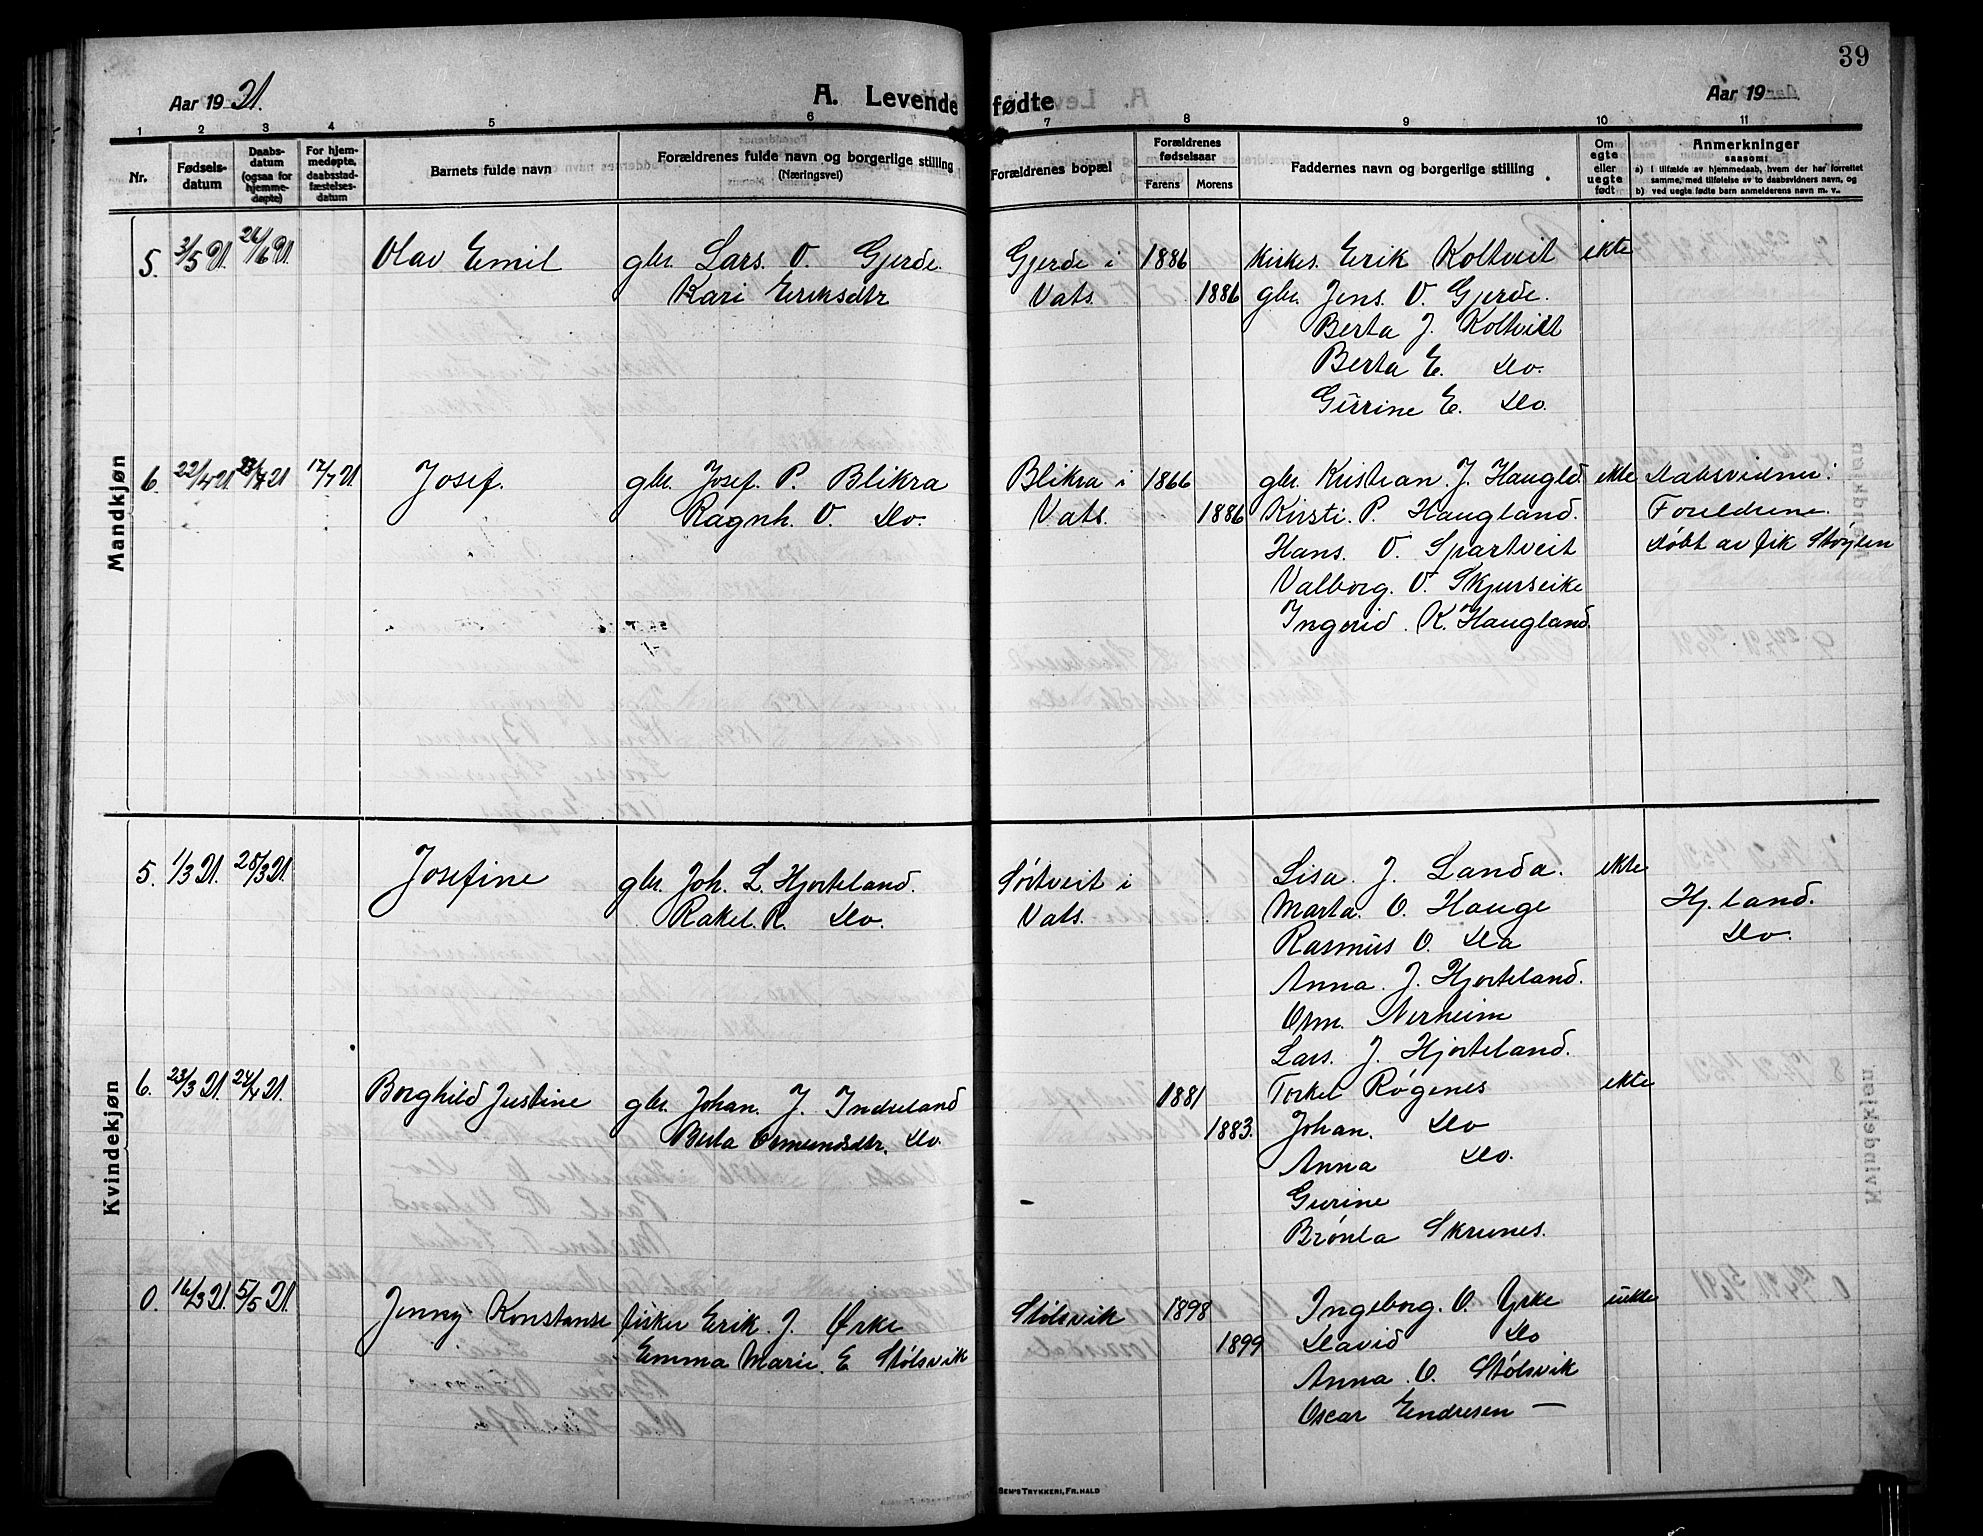 39
Aar 1921.
A. Levende fødte
Aar 19
1 2 3 4 5 6 7 8 9 10 11
Nr.
Fødsels-
datum
Daabs-
datum
(ogsaa for
hjemme-
døpte)
For hjem-
medøpte,
daabsstad-
fæstelses-
datum
Barnets fulde navn
Forældrenes fulde navn og borgerlige stilling
(Næringsvei)
Forældrenes bopæl
Forældrenes
fødselsaar
Farens Morens
Faddernes navn og borgerlige stilling
Om
egte
eller
uegte
født
Anmerkninger
saasom:
a) i tilfælde av hjemmedaab, hvem der har forrettet
samme, med tilføielse av to daabsvidners navn, og
b) ved uegte fødte barn anmelderens navn m. v..
Mandkjøn
5. 3/5 21. 26/6 21. Olav Emil gbr. Lars. O. Gjerde. Gjerde i 1886 Kirkes. Erik Koltveit ekte
Kari Eriksdtr Vats. 1886 gbr. Jens. O. Gjerde.
Berta J. Koltveit
Berta E. Do.
Gurine E. Do.
6. 22/4 21 17/7 21 Josef. gbr. Josef. P. Blikra Blikra i 1866 gbr. Kristian. J. Haugld. ekte Daabsvidner:
Ragnh. O. Do. Vats. 1886 Kirsti. P. Haugland. Foreldrene.
Hans. O. Spartveit Døbt av Støylen
Valborg. O. Skjurseike
Ingerid. K. Haugland.
Kvindekjøn
5. 1/3 21. 28/3 21. Josefine gbr. Joh. L. Hjorteland. Sørtveit i Lisa. J. Landa. ekte
Rakel. R. Do. Vats. Marta. O. Hauge Hj.land.
Rasmus O. Da Do.
Anna. J. Hjorteland.
Orm. Nerheim
Lars. J. Hjorteland.
6. 23/3 21. 24/4 21. Borghild Justine gbr. Johan. J. Indreland 1881 Torkel Røgenes ekte
Berta Osmundsdtr. Do. 1883. Johan. Do
Anna Do.
Gurine
Skrunes.
0. 16/3 21. 5/5 21. Jenny Konstanse fisker Erik. J. Ørke Stølsvik 1898 Ingeborg. O. Yrke uekte
Emma Marie. E. Stølsvik 1899 David Do
Anna. O. Stølsvik
Oscar Endresen —
SEN'S TRYKKERI, FR.HALD